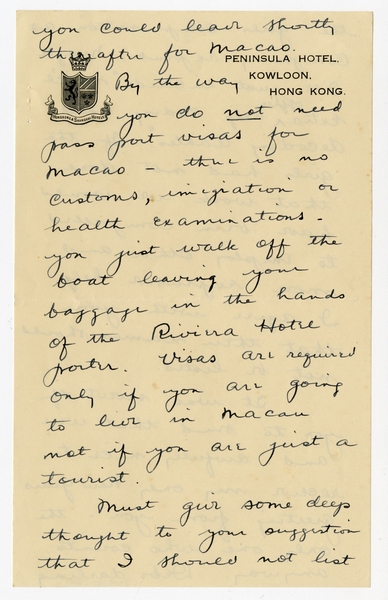 you could leave shortly
thereafter for Macao.
PENINSULA HOTEL,
KOWLOON,
HONG KONG.
By the way
you do not need
pass port visas for
Macao - there is no
customs, imigration or
health examinations -
you just walk off the
boat leaving your
baggage in the hands
of the Riviera Hotel
porter. Visas are required
only if you are going
to live in Macau
not if you are just a
tourist.
Must give some deep
thought to your suggestion
that I should not list